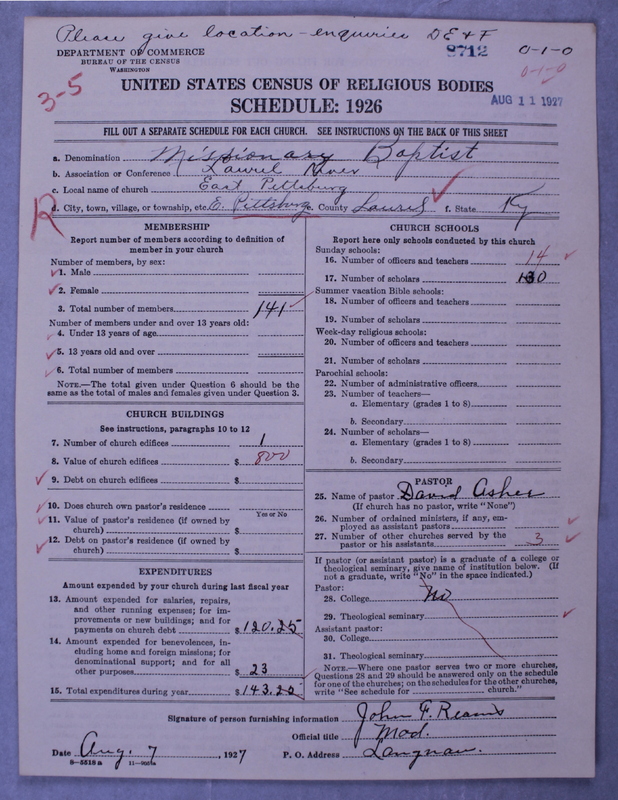 Please give location - enquiries D E & F
8712
0-1-0
0-1-0
DEPARTMENT OF COMMERCE
BUREAU OF THE CENSUS
WASHINGTON
3-5
UNITED STATES CENSUS OF RELIGIOUS BODIES
SCHEDULE: 1926
AUG 11 1927
FILL OUT A SEPARATE SCHEDULE FOR EACH CHURCH. SEE INSTRUCTIONS ON THE BACK OF THIS SHEET
a. Denomination Missionary Baptist
b. Association or Conference Laurel River
c. Local name of church East Pittsburg
R
d. City, town, village, or township, etc. E. Pittsburg e. County Laurel f. State Ky
MEMBERSHIP
Report number of members according to definition of
member in your church
Number of members, by sex:
1. Male
2. Female
3. Total number of members 141
Number of members under and over 13 years old:
4. Under 13 years of age
5. 13 years old and over
6. Total number of members
NOTE.—The total given under Question 6 should be the
same as the total of males and females given under Question 3.
CHURCH BUILDINGS
See instructions, paragraphs 10 to 12
7. Number of church edifices 1
8. Value of church edifices $ 800
9. Debt on church edifices $
10. Does church own pastor's residence
Yes or No
11. Value of pastor's residence (if owned by
church) $
12. Debt on pastor's residence (if owned by
church) $
EXPENDITURES
Amount expended by your church during last fiscal year
13. Amount expended for salaries, repairs,
and other running expenses; for im-
provements or new buildings; and for
payments on church debt $ 120.25
14. Amount expended for benevolences, in-
cluding home and foreign missions; for
denominational support; and for all
other purposes $ 23
15. Total expenditures during year $ 143.25
CHURCH SCHOOLS
Report here only schools conducted by this church
Sunday schools:
16. Number of officers and teachers 14
17. Number of scholars 130
Summer vacation Bible schools:
18. Number of officers and teachers
19. Number of scholars
Week-day religious schools:
20. Number of officers and teachers
21. Number of scholars
Parochial schools:
22. Number of administrative officers
23. Number of teachers—
a. Elementary (grades 1 to 8)
b. Secondary
24. Number of scholars—
a. Elementary (grades 1 to 8)
b. Secondary
PASTOR
25. Name of pastor David Asher
(If church has no pastor, write "None")
26. Number of ordained ministers, if any, em-
ployed as assistant pastors
27. Number of other churches served by the
pastor or his assistants 3
If pastor (or assistant pastor) is a graduate of a college or
theological seminary, give name of institution below. (If
not a graduate, write "No" in the space indicated.)
Pastor:
28. College No
29. Theological seminary
Assistant pastor:
30. College
31. Theological seminary
NOTE.—Where one pastor serves two or more churches,
Questions 28 and 29 should be answered only on the schedule
for one of the churches; on the schedules for the other churches,
write "See schedule for church."
Signature of person furnishing information John F. Reams
Official title Mod.
Date Aug. 7 1927 P. O. Address Langnau.
8-5518a